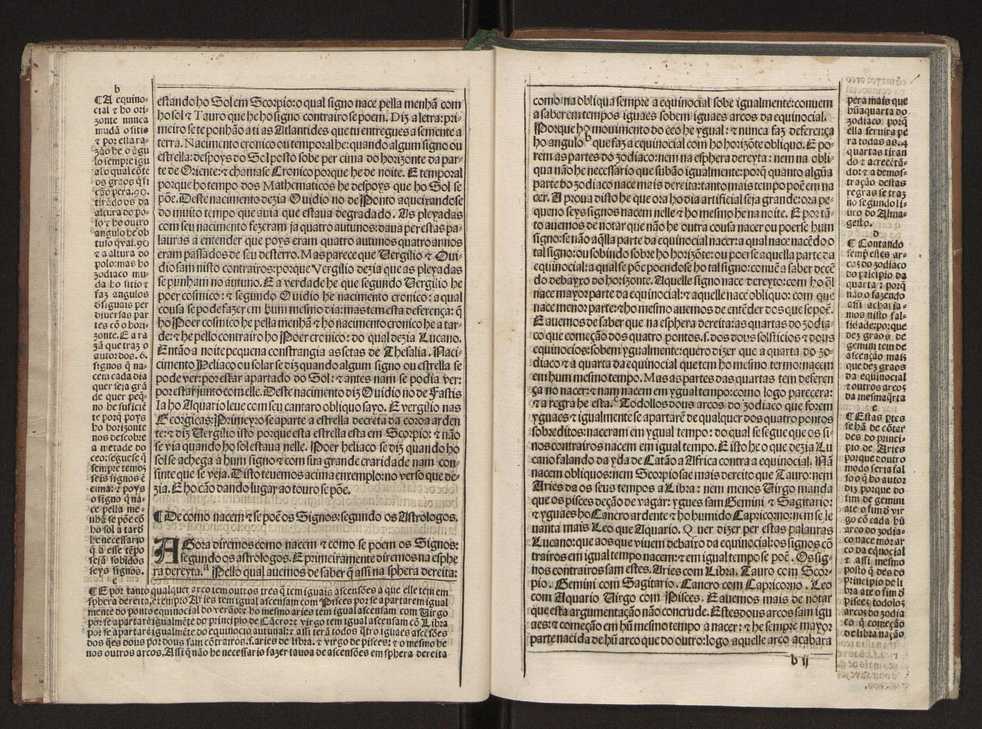 b
¶ A equino-
cial & ho ori-
zonte nunca
mudã o sitio
& por esta ra-
zão he o ãgu
lo sempre igu
al o qual côtẽ
os graos q̃ si
cão pera .90.
tirãdo os da
altura do po-
lo & ho outro
angulo he ob
tuso ygual 90
& a altura do
polo: mas ho
zodiaco mu-
da ho sitio &
faz angulos
desiguais per
diuersas par
tes cõ o hori-
zonte. E a ra
zã que traz o
autor dos .6.
signos q̃ na-
cem cada dia
quer seja grã
de quer peq̃
no he suficiẽ
te porq̃ poys
ho horizonte
nos descobre
a metade do
ceo: segue se q̃
sempre temos
seis signos ẽ
cima: & poys
o signo q̃ na-
ce pella me-
nhã se põe cõ
ho sol à tarde
he necessario
q̃ a esse tẽpo
sejã sobidos
seys signos.
estando ho Sol em Scorpio: o qual signo nace pella menhã com
ho sol & Tauro que he ho signo contrairo se poem. Diz a letra: pri-
meiro se te ponhão a ti as Atlantides que tu entregues a semente a
terra. Nacimento cronico ou temporal he: quando algum signo ou
estrella: despoys do Sol posto sobe per cima do horizonte da par-
te de Oriente: & chamase Cronico porque he de noite. E temporal
porque ho tempo dos Mathematicos he despoys que ho Sol se
põe. Deste nacimento dezia Ouidio no de Ponto aqueixandose
do muito tempo que auia que estaua degradado. As pleyadas
com seu nacimento fezeram ja quatro autunos: daua per estas pa-
lauras a entender que poys eram quatro autunos quatro annos
eram passados de seu desterro. Mas parece que Vergilio & Oui-
dio sam nisto contrairos: porque Vergilio dezia que as pleyadas
se punham no autuno. E a verdade he que segundo Vergilio he
poer cosmico: & segundo Ouidio he nacimento cronico: a qual
cousa se pode fazer em hum mesmo dia: mas tem esta deferença: q̃
ho Poer cosmico he pella menhã & ho nacimento cronico he a tar-
de: & he pello contrairo ho Poer cronico: do qual dezia Lucano.
Então a noite pequena constrangia as setas de Thesalia. Naci-
cimento Peliaco ou solar se diz quando algum signo ou estrella se
pode ver: por estar apartado do Sol: & antes nam se podia ver:
por estar junto com elle. Deste nacimento diz Ouidio no de Fastis
Ja ho Aquario leue com seu cantaro obliquo sayo. E vergilio nas
Georgicas: Primeyro se aparte a estrella decreta da coroa arden
te: & diz Vergilio isto porque esta estrella esta em Scorpio: & não
se via quando ho sol estaua nelle. Poer heliaco se diz quando ho
sol se achega a hum signo & com sua grande craridade nam con-
sinte que se veja. Disto teuemos acima enxemplo: no verso que de-
zia. E ho cão dando lugar ao touro se põe.
¶ De como nacem & se poẽ os Signos: segundo os Astrologos.
AGora diremos como nacem & como se poem os Signos:
segundo os astrologos. E primeiramente diremos na esphe
ra dereyta. a Pello qual auemos de saber q̃ assi na sphera dereita:
c
¶ E por tanto qualquer arco tem outros tres q̃ tem iguais ascensões a que elle tem em
sphera dereita, exemplo Aries tem igual ascensam com Pisces por se apartarem igual
mente do ponto equinocial do verão: & ho mesmo aries tem igual ascensam com Virgo
por se apartarẽ igualmẽte do principio de Cãcro: & virgo tem igual ascensam cõ Libra
por se apartarẽ igualmẽte do equinocio autunal: & assi terã todos q̃tro iguaes ascẽsões
dos q̃es dous por dous sam cõtrairos. s. aries de libra. & virgo de pisces: & o mesmo he
nos outros arcos. Assi q̃ não he necessario fazer tauoa de ascensões em sphera dereita
como na obliqua sempre a equinocial sobe igualmente: conuem
a saber em tempos iguaes sobem iguaes arcos da equinocial.
Porque ho mouimento do ceo he ygual: & nunca faz deferença
ho angulo b que faz a equinocial com ho horizõte obliquo. E po-
rem as partes do zodiaco: nem na esphera dereyta: nem na obli-
qua não he necessario que subão igualmente: porq̃ quanto algũa
parte do zodiaco nace mais dereita: tanto mais tempo poẽ em na
cer. A proua disto he que ora ho dia artificial seja grande: ora pe-
queno seys signos nacem nelle & ho mesmo he na noite. E por tã-
to auemos de notar que não he outra cousa nacer ou poerse hum
signo: se não aq̃lla parte da equinocial nacer: a qual nace nacẽdo o
tal signo: ou sobindo sobre ho horizõte: ou poerse aquella parte da
equinocial: a qual se põe poendose ho tal signo: conuẽ a saber decẽ
do debaxo do horizonte. Aquelle signo nace dereyto: com ho q̃l
nace mayor parte da equinocial: & aquelle nace obliquo: com que
nace menor parte: & ho mesmo auemos de entẽder dos que se poẽ.
E auemos de saber que na esphera dereita: as quartas do zodia-
co que começão dos quatro pontos. s. dos dous solsticios & dous
equinocios: sobem ygualmente: quero dizer que a quarta do zo-
diaco & a quarta da equinocial que tem ho mesmo termo: nacem
em hum mesmo tempo. Mas as partes das quartas tem deferen
ça no nacer: & nam nacem em ygual tempo: como logo parecera:
& a regra he esta. c Todollos dous arcos do zodiaco que forem
yguaes & igualmente se apartarẽ de qualquer dos quatro pontos
sobreditos: naceram em ygual tempo: do qual se segue que os si-
nos contrairos nacem em igual tempo. E isto he o que dezia Lu
cano falando da yda de Catão a Africa contra a equinocial. Nã
nacem obliquos: nem Scorpio sae mais dereito que Tauro: nem
Aries da os seus tempos a Libra: nem menos Virgo manda
que os pisces deção de vagar: ygues sam Gemini & Sagitario:
& yguaes ho Cancro ardente & ho humido Capricorno: nem se le
uanta mais Leo que Aquario. Quer dizer per estas palauras
Lucano: que aos que viuem debaixo da equinocial: os signos cõ
trairos em igual tempo nacem: & em igual tempo se poẽ. Os sig-
nos contrairos sam estes. Aries com Libra. Tauro com Scor-
pio. Gemini com Sagitario. Cancro com Capricorno. Leo
com Aquario Virgo com Pisces. E auemos mais de notar
que esta argumentação não concrude. Estes dous arcos sam igu
aes: & começão em hũ mesmo tempo a nacer: & he sempre mayor
parte nacida de hũ arco que do outro: logo aquelle arco acabara
b ij
pera mais que
hũa quarta do
zodiaco porq̃
ella seruira pe
ra todas as .4.
quartas tiran
do & acrecẽtã-
do: & a demos-
tração destas
regras se traz
no segundo li-
uro do Alma-
gesto.
d
¶ Contando
sempre estes ar-
cos do zodiaco
do prícipio da
quarta: & porq̃
não o fazendo
assi achaisa-
mos nisto fal-
sidade: por que
dez graos de
gemini tem de
ascẽção mais
que dez graos
da equinocial
& outros arcos
da mesma q̃rta
e
¶ Estas pres
se hã de cõter
des do princi-
pio de Aries
porque doutro
modo seria fal
so o q̃ ho autor
diz porque do
fim de gemini
ate o fim d vir
go cõ cada hũ
arco do zodia-
co nace mor ar
co da eq̃nocial
& assi mesmo
posto q̃ des do
principio de li
bra ate o fim d
pisces: todolos
arcos do zodia
co q̃ começão
de libra nação